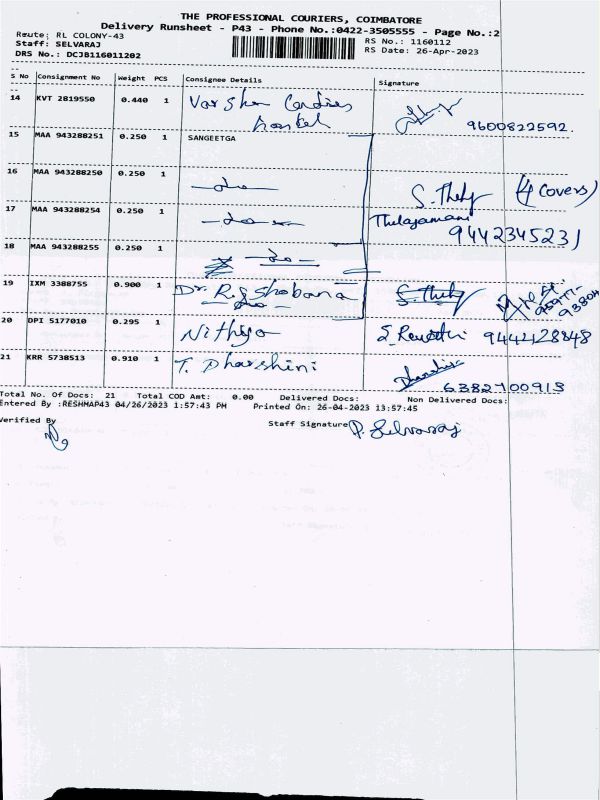 THE PROFESSIONAL COURIERS, COIMBATORE
Delivery Runsheet - P43 - Phone No.:0422-3505555 - Page No.:2
Route: RL COLONY-43
Staff: SELVARAJ
RS No.: 1160112
DRS No.: DCJB116011202
RS Date: 26-Apr-2023
S No Consignment No Weight PCS Consignee Details Signature
14 KVT 2819550 0.440 1 Varsha Candies
hostel 9600822592.
15 MAA 943288251 0.250 1 SANGEETGA
16 MAA 943288250 0.250 1 -do- S. Thely (4 Covers)
17 MAA 943288254 0.250 1 -do- Thelajamani
9442345231
18 MAA 943288255 0.250 1 -do-
19 IXM 3388755 0.900 1 Dr. R.g Shobana
20 DPI 5177010 0.295 1 Nithya S. Revathi 9444128848
21 KRR 5738513 0.910 1 T. Dharshini
6382700913
Total No. Of Docs: 21 Total COD Amt: 0.00 Delivered Docs: Non Delivered Docs:
Entered By :RESHMAP43 04/26/2023 1:57:43 PM Printed On: 26-04-2023 13:57:45
Verified By Staff Signature P. Selvaraj